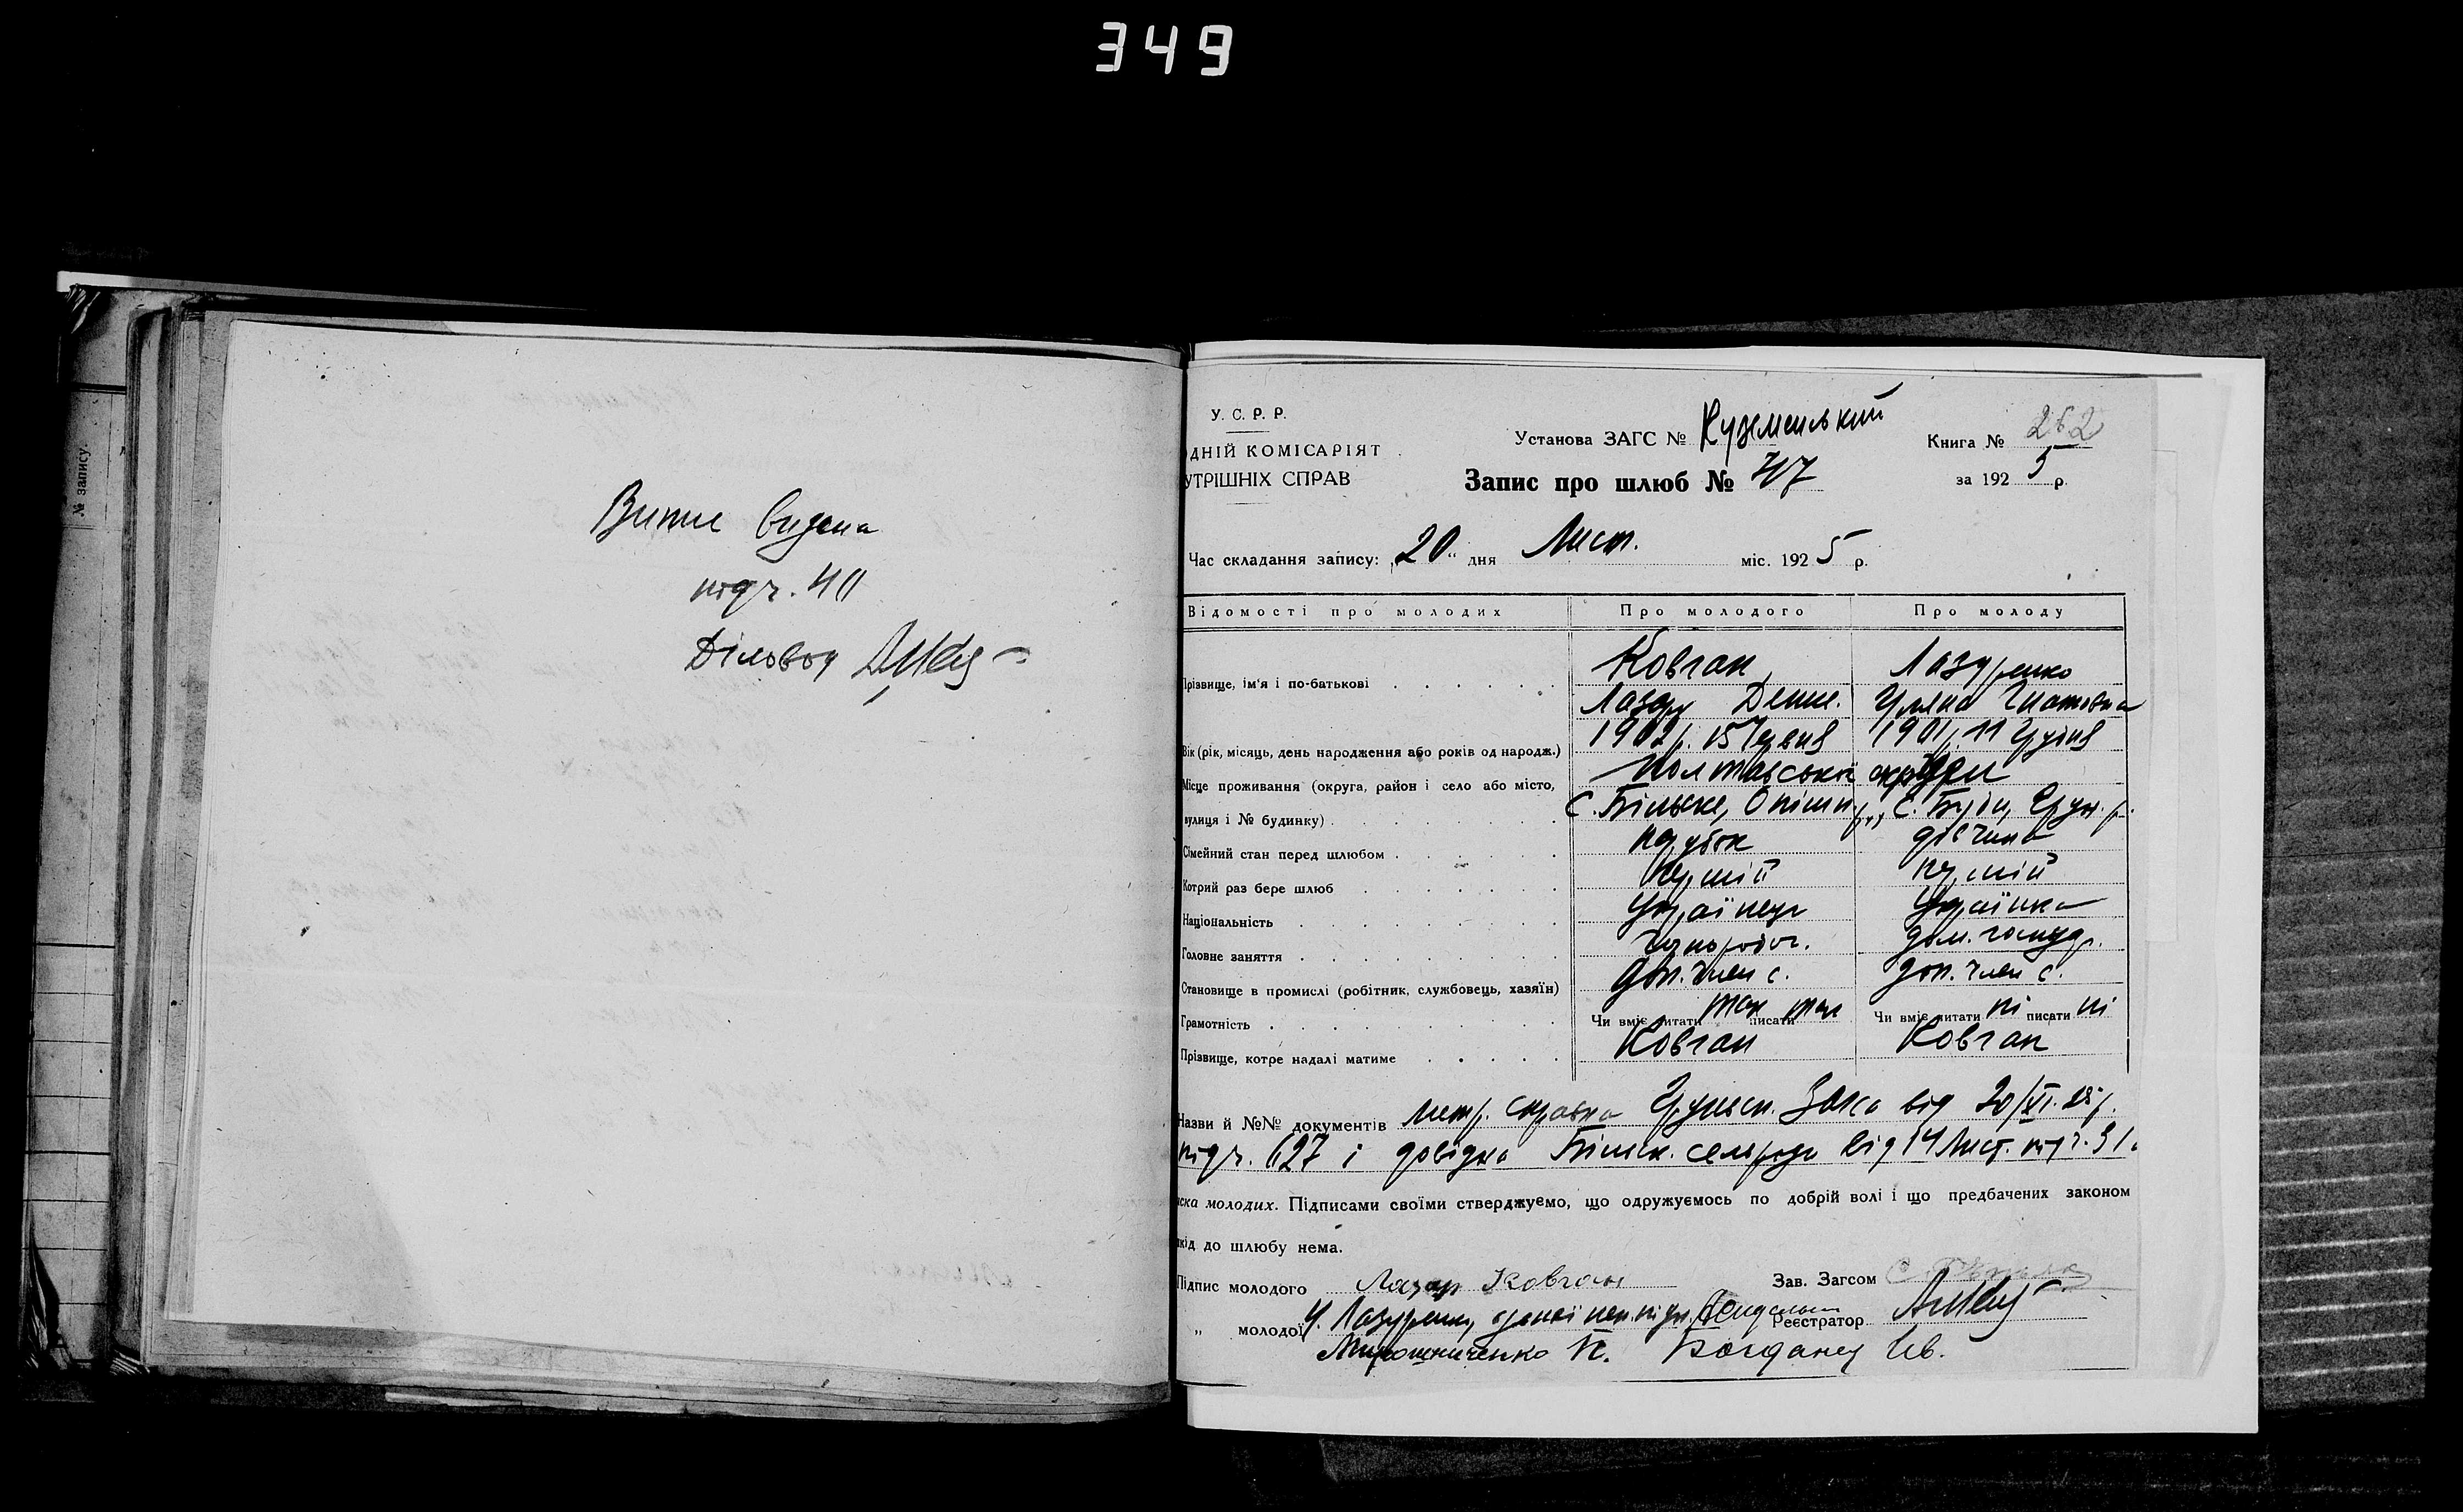 349
№ запису.
Витяг видана
підч. 40
Діловод
У. С. Р. Р.
ДНІЙ КОМІСАРІЯТ
УТРІШНІХ СПРАВ
Установа ЗАГС № Куземенський
Книга № 262
Запис про шлюб № 47
за 1925 р.
Час складання запису: „20“ дня Лист. міс. 1925 р.
Відомості про молодих Про молодого Про молоду
Прізвище, ім'я і по-батькові Ковган Лазуренко
Лазар Денис. Уляна Гнатовна
Вік (рік, місяць, день народження або років од народж.) 1902 р. 15 Червня 1901 р. 11 Грудня
Місце проживання (округа, район і село або місто, Полтавської округи
вулиця і № будинку) с. Більське, Опішн. р., с. Буди, Грун. р.
Сімейний стан перед шлюбом парубок дівчина
Котрий раз бере шлюб перший перший
Національність Українець Українка
Головне заняття Чорнороб. дом. господ.
Становище в промислі (робітник, службовець, хазяїн) доп. член с. доп. член с.
Грамотність Чи вміє читати так писати так Чи вміє читати ні писати ні
Прізвище, котре надалі матиме Ковган Ковган
Назви й №№ документів метр. справка Груньск. Загса від 20/XI. 25 р.
підч. 627 і довідка Більск. сельради від 14 Лист. підч. 31.
иска молодих. Підписами своїми стверджуємо, що одружуємось по добрій волі і що предбачених законом
шкід до шлюбу нема.
Підпис молодого Лазар Ковган Зав. Загсом
„ молодої У. Лазуренко, а за неї неп. підп. Реєстратор
Мирошниченко П. Богданец Ив.